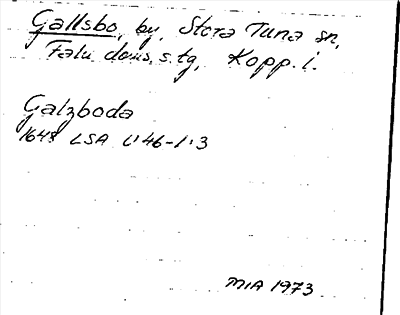 Gallsbo, by, Stora Tuna sn,
Falu doms. s. tg, Kopp. l.
Galzboda
1648 LSA U 46-1:3
MIA 1973